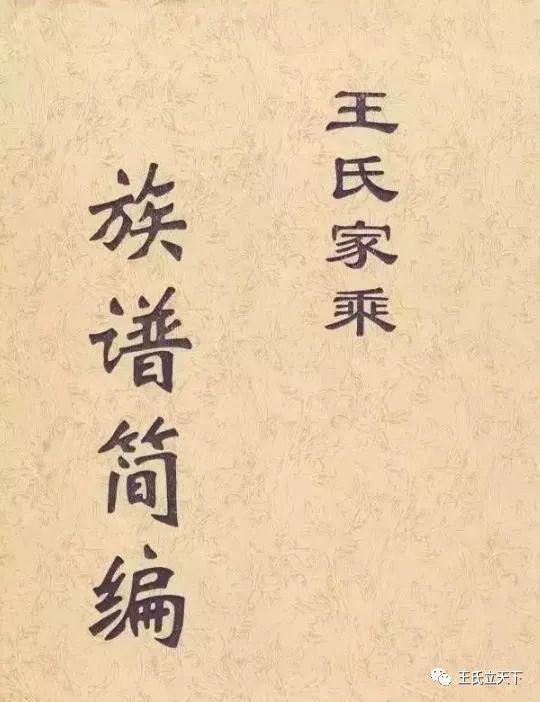 王氏家乘
族谱简编
王氏立天下